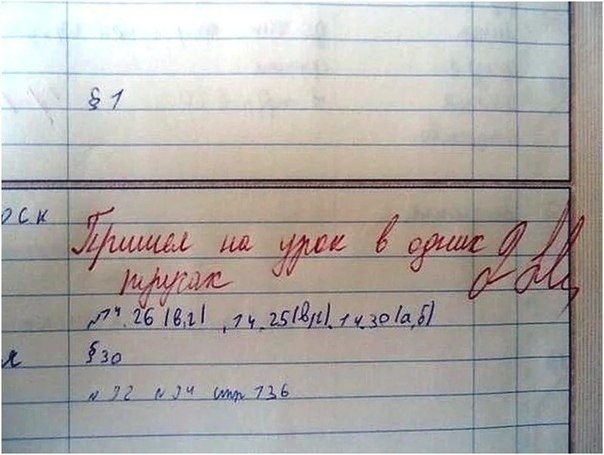 § 1
оск
Пришел на урок в одних 2
трусах
№14.26(в,г), 14.25(в,г), 14.30(а,б)
я §30
№32 №34 стр 136